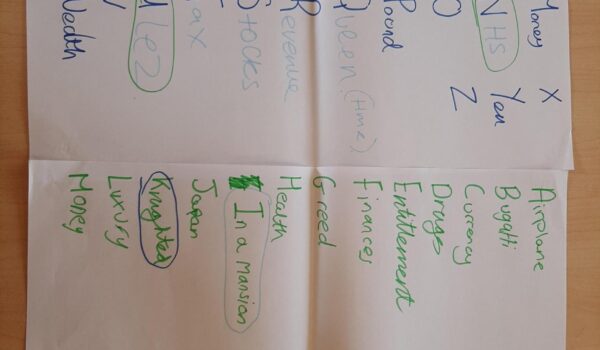 Money
NHS
O
Pound
Queen
Revenue
Stocks
ax
ULEZ
Wealth
X
Yen
Z
Airplane
Bugatti
Currency
Drugs
Entitlement
Finances
Greed
Health
In a mansion
Japan
Knighted
Luxury
Money